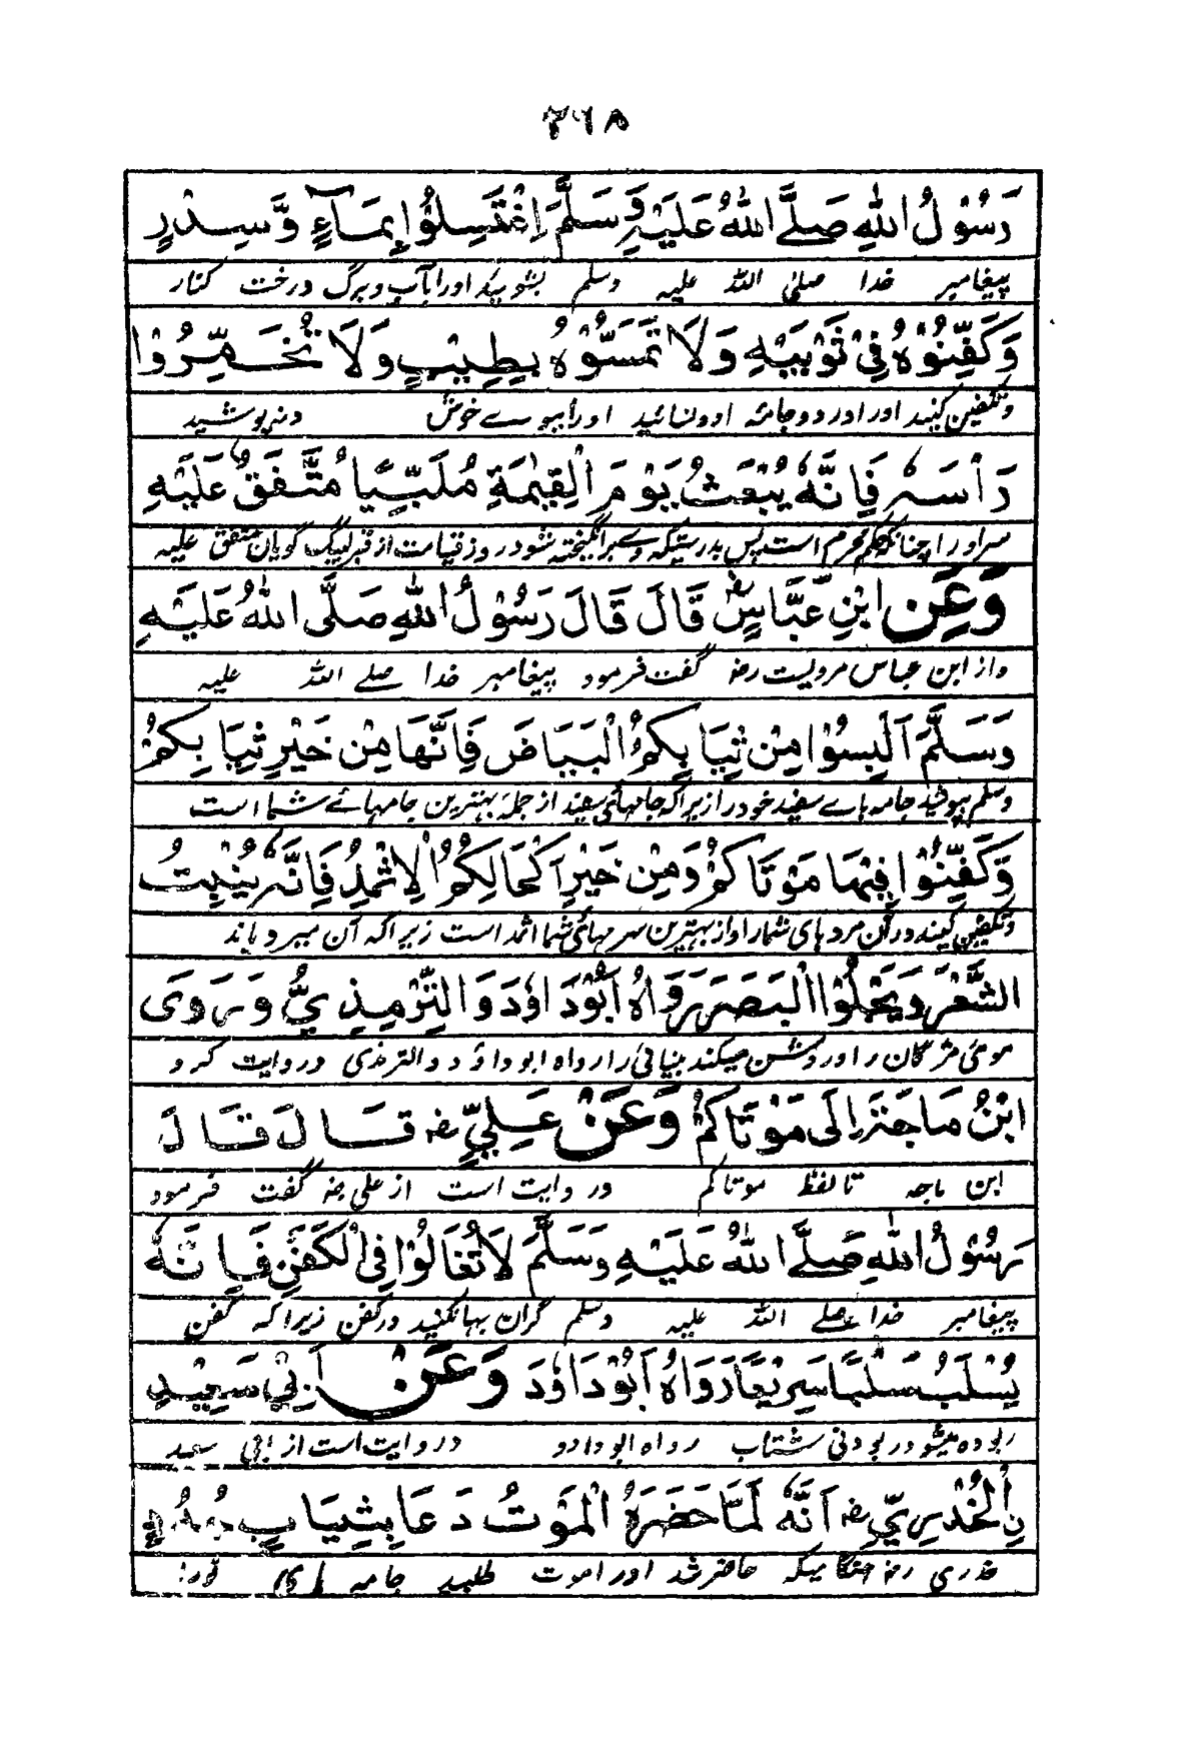 ۲۶۸
رَسُوْلُ اللّٰهِ صَلَّے اللّٰهُ عَلَيْهِ وَسَلَّمَ اِغْتَسِلُوْا بِمَآءٍ وَّ سِدْرٍ
پیغامبر خدا صلی اللّٰه علیه وسلم بشوئید اورا بآب و برگ درخت کنار
وَكَفِّنُوْهُ فِيْ ثَوْبَيْهِ وَلَا تَمَسُّوْهُ بِطِيْبٍ وَلَا تُخَمِّرُوْا
وتکفین کنید اورا در دو جامۂ او ونسائید اورا ببوے خوش ونپوشید
رَأْسَهٗ فَاِنَّهٗ يُبْعَثُ يَوْمَ الْقِيٰمَةِ مُلَبِّيًا مُتَّفَقٌ عَلَيْهِ
سر اورا چنانکه حکم محرم است پس بدرستیکه وے برانگیخته شود روز قیامت از قبر لبیک گویان متفق علیه
وَعَنِ ابْنِ عَبَّاسٍ رض قَالَ قَالَ رَسُوْلُ اللّٰهِ صَلَّى اللّٰهُ عَلَيْهِ
واز ابن عباس مرویست رض گفت فرمود پیغامبر خدا صلے اللّٰه علیه
وَسَلَّمَ اَلْبِسُوْا مِنْ ثِيَابِكُمُ الْبَيَاضَ فَاِنَّهَا مِنْ خَيْرِ ثِيَابِكُمْ
وسلم بپوشید جامه ہاے سفید خود را زیراکه جامهائے سفید از جملۂ بهترین جامهائے شما است
وَكَفِّنُوْا فِيْهَا مَوْتَاكُمْ وَمِنْ خَيْرِ اَكْحَالِكُمُ الْاِثْمِدُ فَاِنَّهٗ يُنْبِتُ
وتکفین کنید در آن مردهای شما را و از بهترین سرمهائے شما اثمد است زیراکه آن میرویاند
الشَّعْرَ وَيَجْلُوا الْبَصَرَ رَوَاهُ اَبُوْ دَاوٗدَ وَالتِّرْمِذِيُّ وَرَوَى
موئی مژگان را و روشن میکند بینائی را رواه ابو داؤد والترمذی وروایت کرد
ابْنُ مَاجَةَ اِلَى مَوْتَاكُمْ وَعَنْ عَلِيٍّ رض قَالَ قَالَ
ابن ماجه تا لفظ موتاکم وروایت است از علی رض گفت فرمود
رَسُوْلُ اللّٰهِ صَلَّے اللّٰهُ عَلَيْهِ وَسَلَّمَ لَا تُغَالُوْا فِي الْكَفَنِ فَاِنَّهٗ
پیغامبر خدا صلے اللّٰه علیه وسلم گران بها نکنید در کفن زیراکه کفن
يُسْلَبُ سَلْبًا سَرِيْعًا رَوَاهُ اَبُوْ دَاوٗدَ وَعَنْ اَبِيْ سَعِيْدٍ
ربوده میشود ربودنی شتاب رواه ابو داود وروایت است از ابی سعید
نِ الْخُدْرِيِّ رض اَنَّهٗ لَمَّا حَضَرَهُ الْمَوْتُ دَعَا بِثِيَابٍ جُدُدٍ
خدری رض هنگامیکه حاضر شد اورا موت طلبید جامه